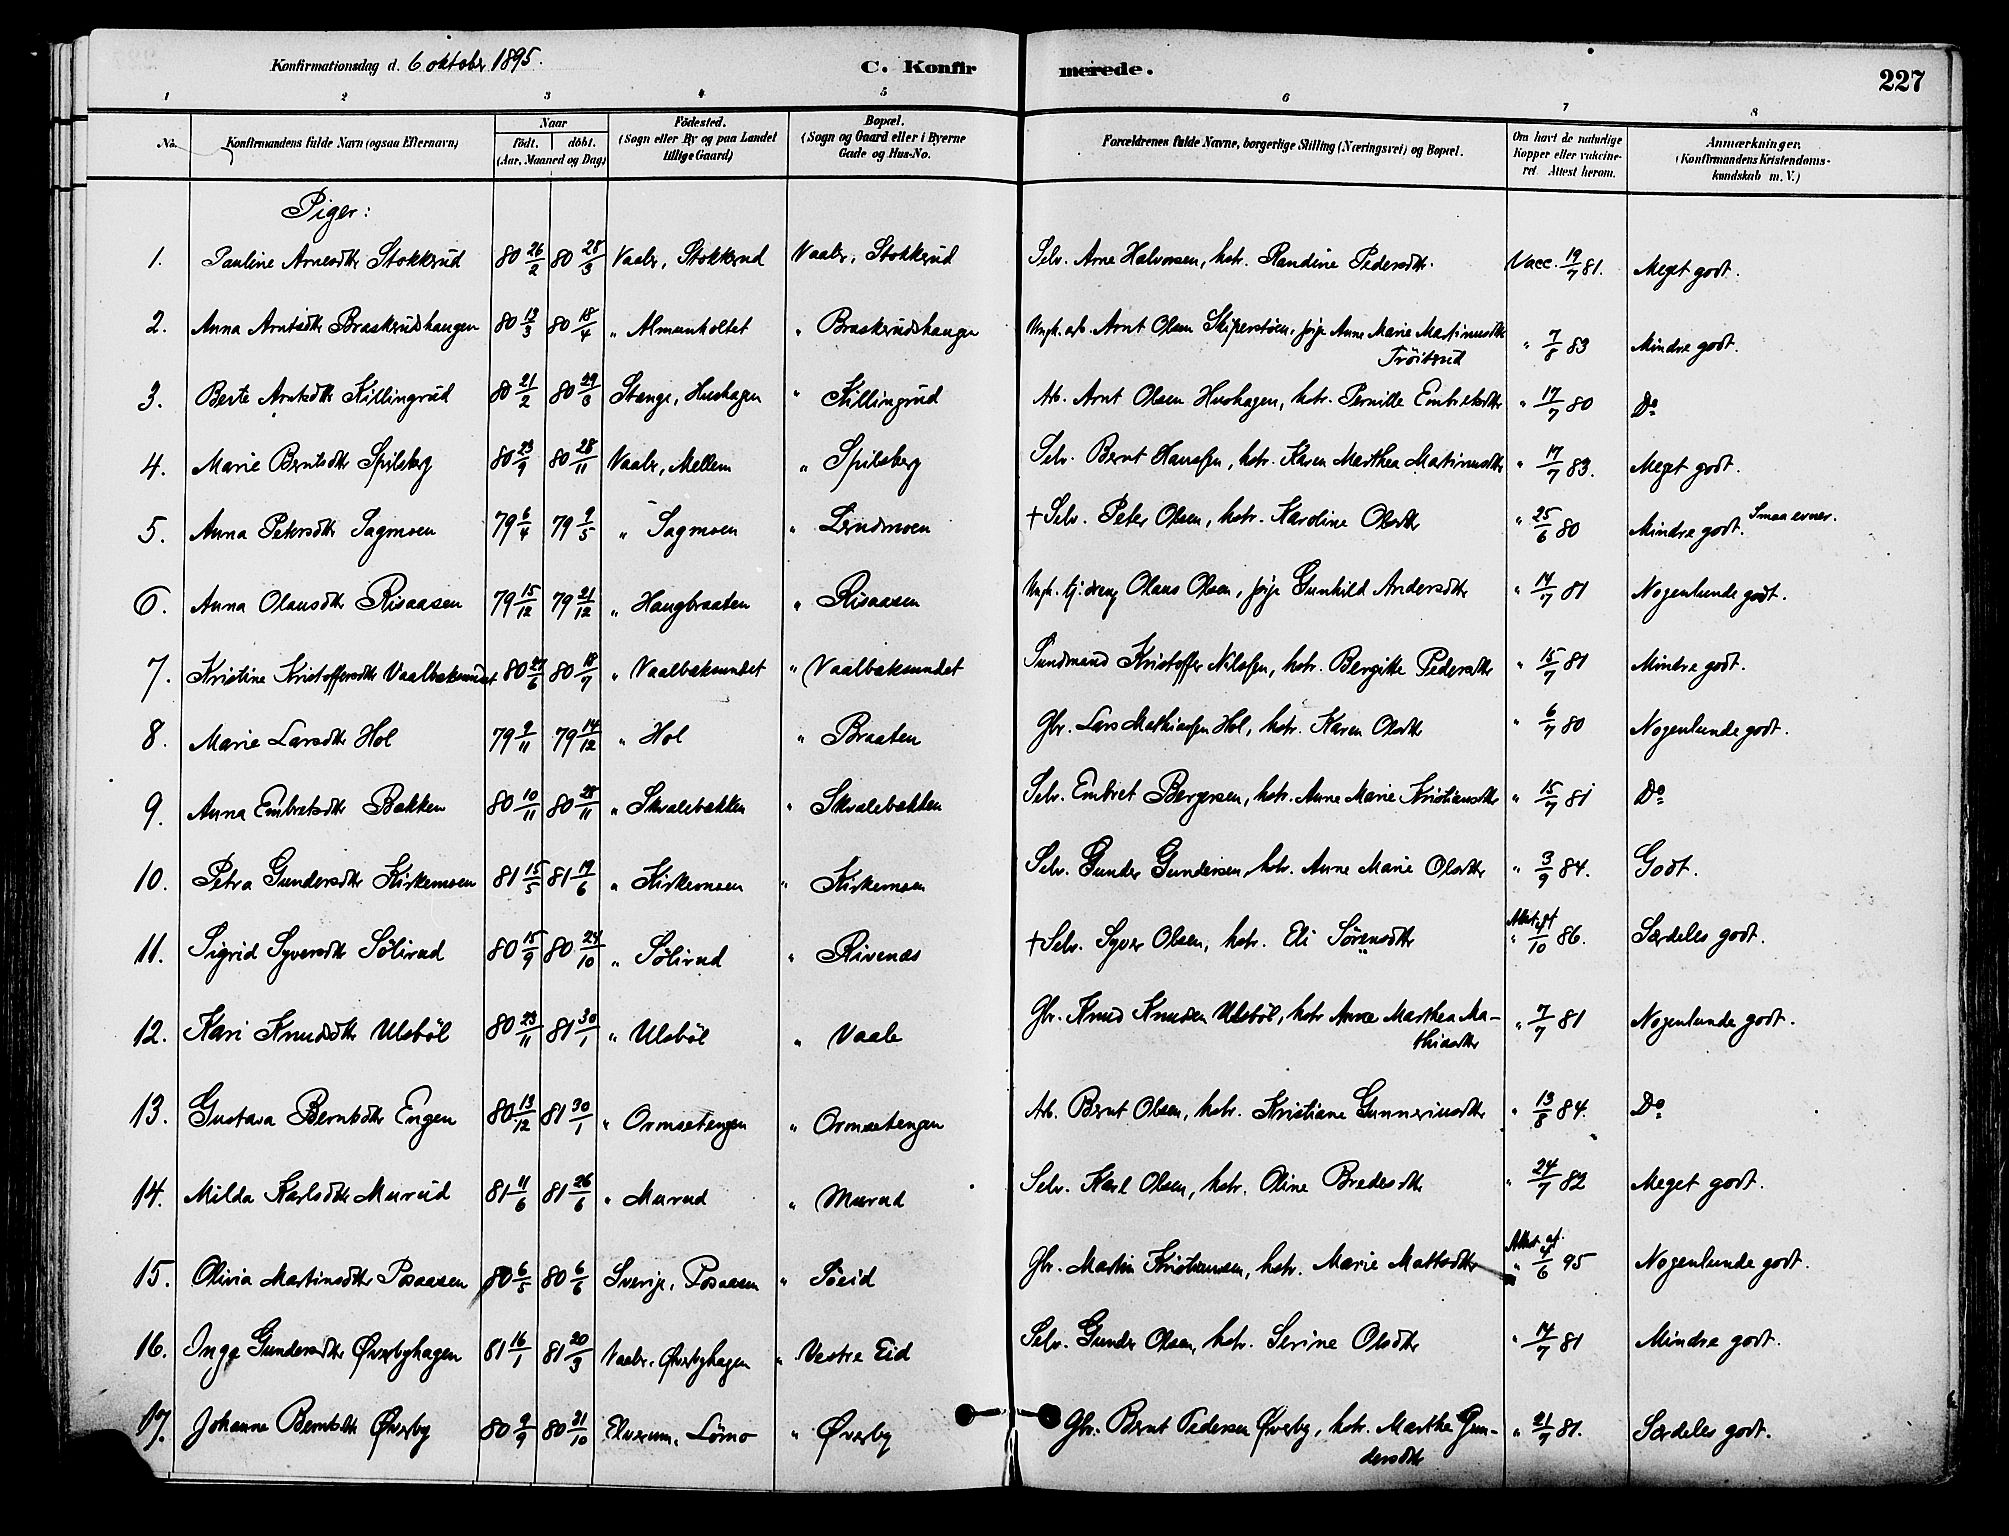 Konfirmationsdag d. 6 oktober 1895.
C. Konfirmerede.
227
1 2 3 4 5 6 7 8
No.
Konfirmandens fulde Navn (ogsaa Efternavn)
Naar
født. døbt.
(Aar, Maaned og Dag)
Fødested.
(Sogn eller By og paa Landet
tillige Gaard)
Bopæl.
(Sogn og Gaard eller i Byerne
Gade og Hus-No.
Forældrenes fulde Navne, borgerlige Stilling (Næringsvei) og Bopæl.
Om havt de naturlige
Kopper eller vakcine-
ret. Attest herom.
Anmærkninger.
(Konfirmandens Kristendoms-
kundskab m. V.)
Piger:
1. Pauline Arnesdtr Stokkrud 80 26/2 80 28/3 Vaaler, Stokkrud Vaaler, Stokkrud Selv. Arne Halvorsen, hstr. Randine Pedersdtr. Vacc. 19/7 81. Meget godt.
2. Anna Arntsdtr Braskerudshaugen 80 13/3 80 18/4 " Almenholtet " Braskerudshaugen Ungk. arb. Arnt Olsen Skiperstøen, pige Anne Marie Martinusdtr
Trøitsrud " 7/8 83 Mindre godt.
3. Berte Arntsdtr Killingrud 80 21/2 80 29/3 Stange, Hushagen " Killingrud Arb. Arnt Olsen Hushagen, hstr. Pernille Embretsdtr " 17/7 80 Do
4. Marie Berntsdtr Spilsberg 80 23/9 80 28/11 Vaaler, Mellem " Spilsberg Selv. Bernt Hansen, hstr. Karen Marthea Martinusdtr " 17/7 83. Meget godt.
5. Anna Petersdtr Sagmoen 79 6/4 79 9/5 " Sagmoen " Lindmoen † Selv. Peter Olsen, hstr. Karoline Olsdtr " 25/6 80 Mindre godt. Smaa evner.
6. Anna Olausdtr Risaasen 79 15/12 79 21/12 " Haugbraaten " Risaasen Ungk. tj.dreng Olaus Olsen, pige Gunhild Andersdtr " 14/7 81 Nogenlunde godt.
7. Kristine Kristoffersdtr Vaalbaksundet 80 27/6 80 18/7 " Vaalbaksundet " Vaalbaksundet Sundmand Kristoffer Nilssen, hstr. Bergitte Pedersdtr " 15/7 81 Mindre godt.
8. Marie Larsdtr Hol 79 9/11 79 14/12 " Hol " Braaten Gbr. Lars Mathiassen Hol, hstr. Karen Olsdtr " 6/7 80 Nogenlunde godt.
9. Anna Embretsdtr Bakken 80 10/11 80 28/11 " Skvalebakken " Skvalebakken Selv. Embret Bergersen, hstr. Anne Marie Kristiansdtr " 15/7 81 Do
10. Petra Gundersdtr Kirkemoen 81 15/5 81 19/6 " Kirkemoen " Kirkemoen Selv. Gunder Gundersen, hstr. Anne Marie Olsdtr " 3/9 84. Godt.
11. Sigrid Syversdtr Sølirud 80 15/9 80 24/10 " Sølirud " Rivenæs † Selv. Syver Olsen, hstr. Eli Sørensdtr Attest af " /10 86. Særdeles godt.
12. Kari Knudsdtr Ulsbøl 80 23/11 81 30/1 " Ulsbøl " Vaale Gbr. Knud Knudsen Ulsbøl, hstr Anne Marthea Ma-
thiasdtr " 7/7 81 Nogenlunde godt.
13. Gustava Berntsdtr Engen 80 13/12 81 30/1 " Ormsetengen " Ormsetengen Arb. Bernt Olsen, hstr. Kristiane Gunneriusdtr " 13/8 84. Do
14. Milda Karlsdtr Murud 81 11/6 81 26/6 " Murud " Murud Selv. Karl Olsen, hstr. Oline Bredesdtr " 24/7 82 Meget godt.
15. Olivia Martinsdtr Posaasen 80 6/5 80 6/6 Sverige, Posaasen " Søeid Gbr. Martin Kristiansen, hstr. Marie Matsdtr Attest af " /6 95 Nogenlunde godt.
16. Inga Gundersdtr Øverbyhagen 81 16/1 81 20/3 Vaaler, Øverbyhagen " Vestre Eid Selv. Gunder Olsen, hstr. Serine Olsdtr " 14/7 81 Mindre godt.
17. Johanne Berntsdtr Øverby 80 9/9 80 31/10 Elverum, Lømo " Øverby Gbr. Bernt Pedersen Øverby, hstr. Marthe Gun-
dersdtr " 21/7 81. Særdeles godt.